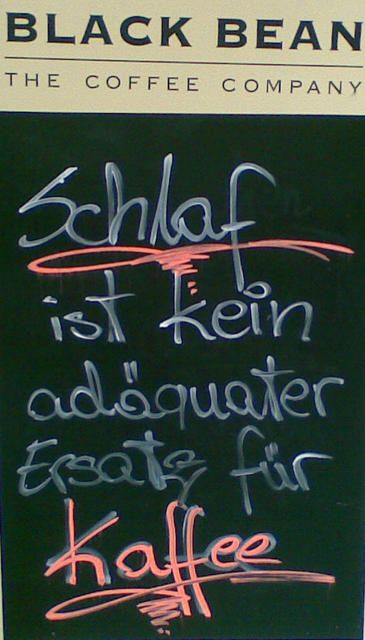 BLACK BEAN
THE COFFEE COMPANY
Schlaf
ist kein
adäquater
Ersatz für
Kaffee